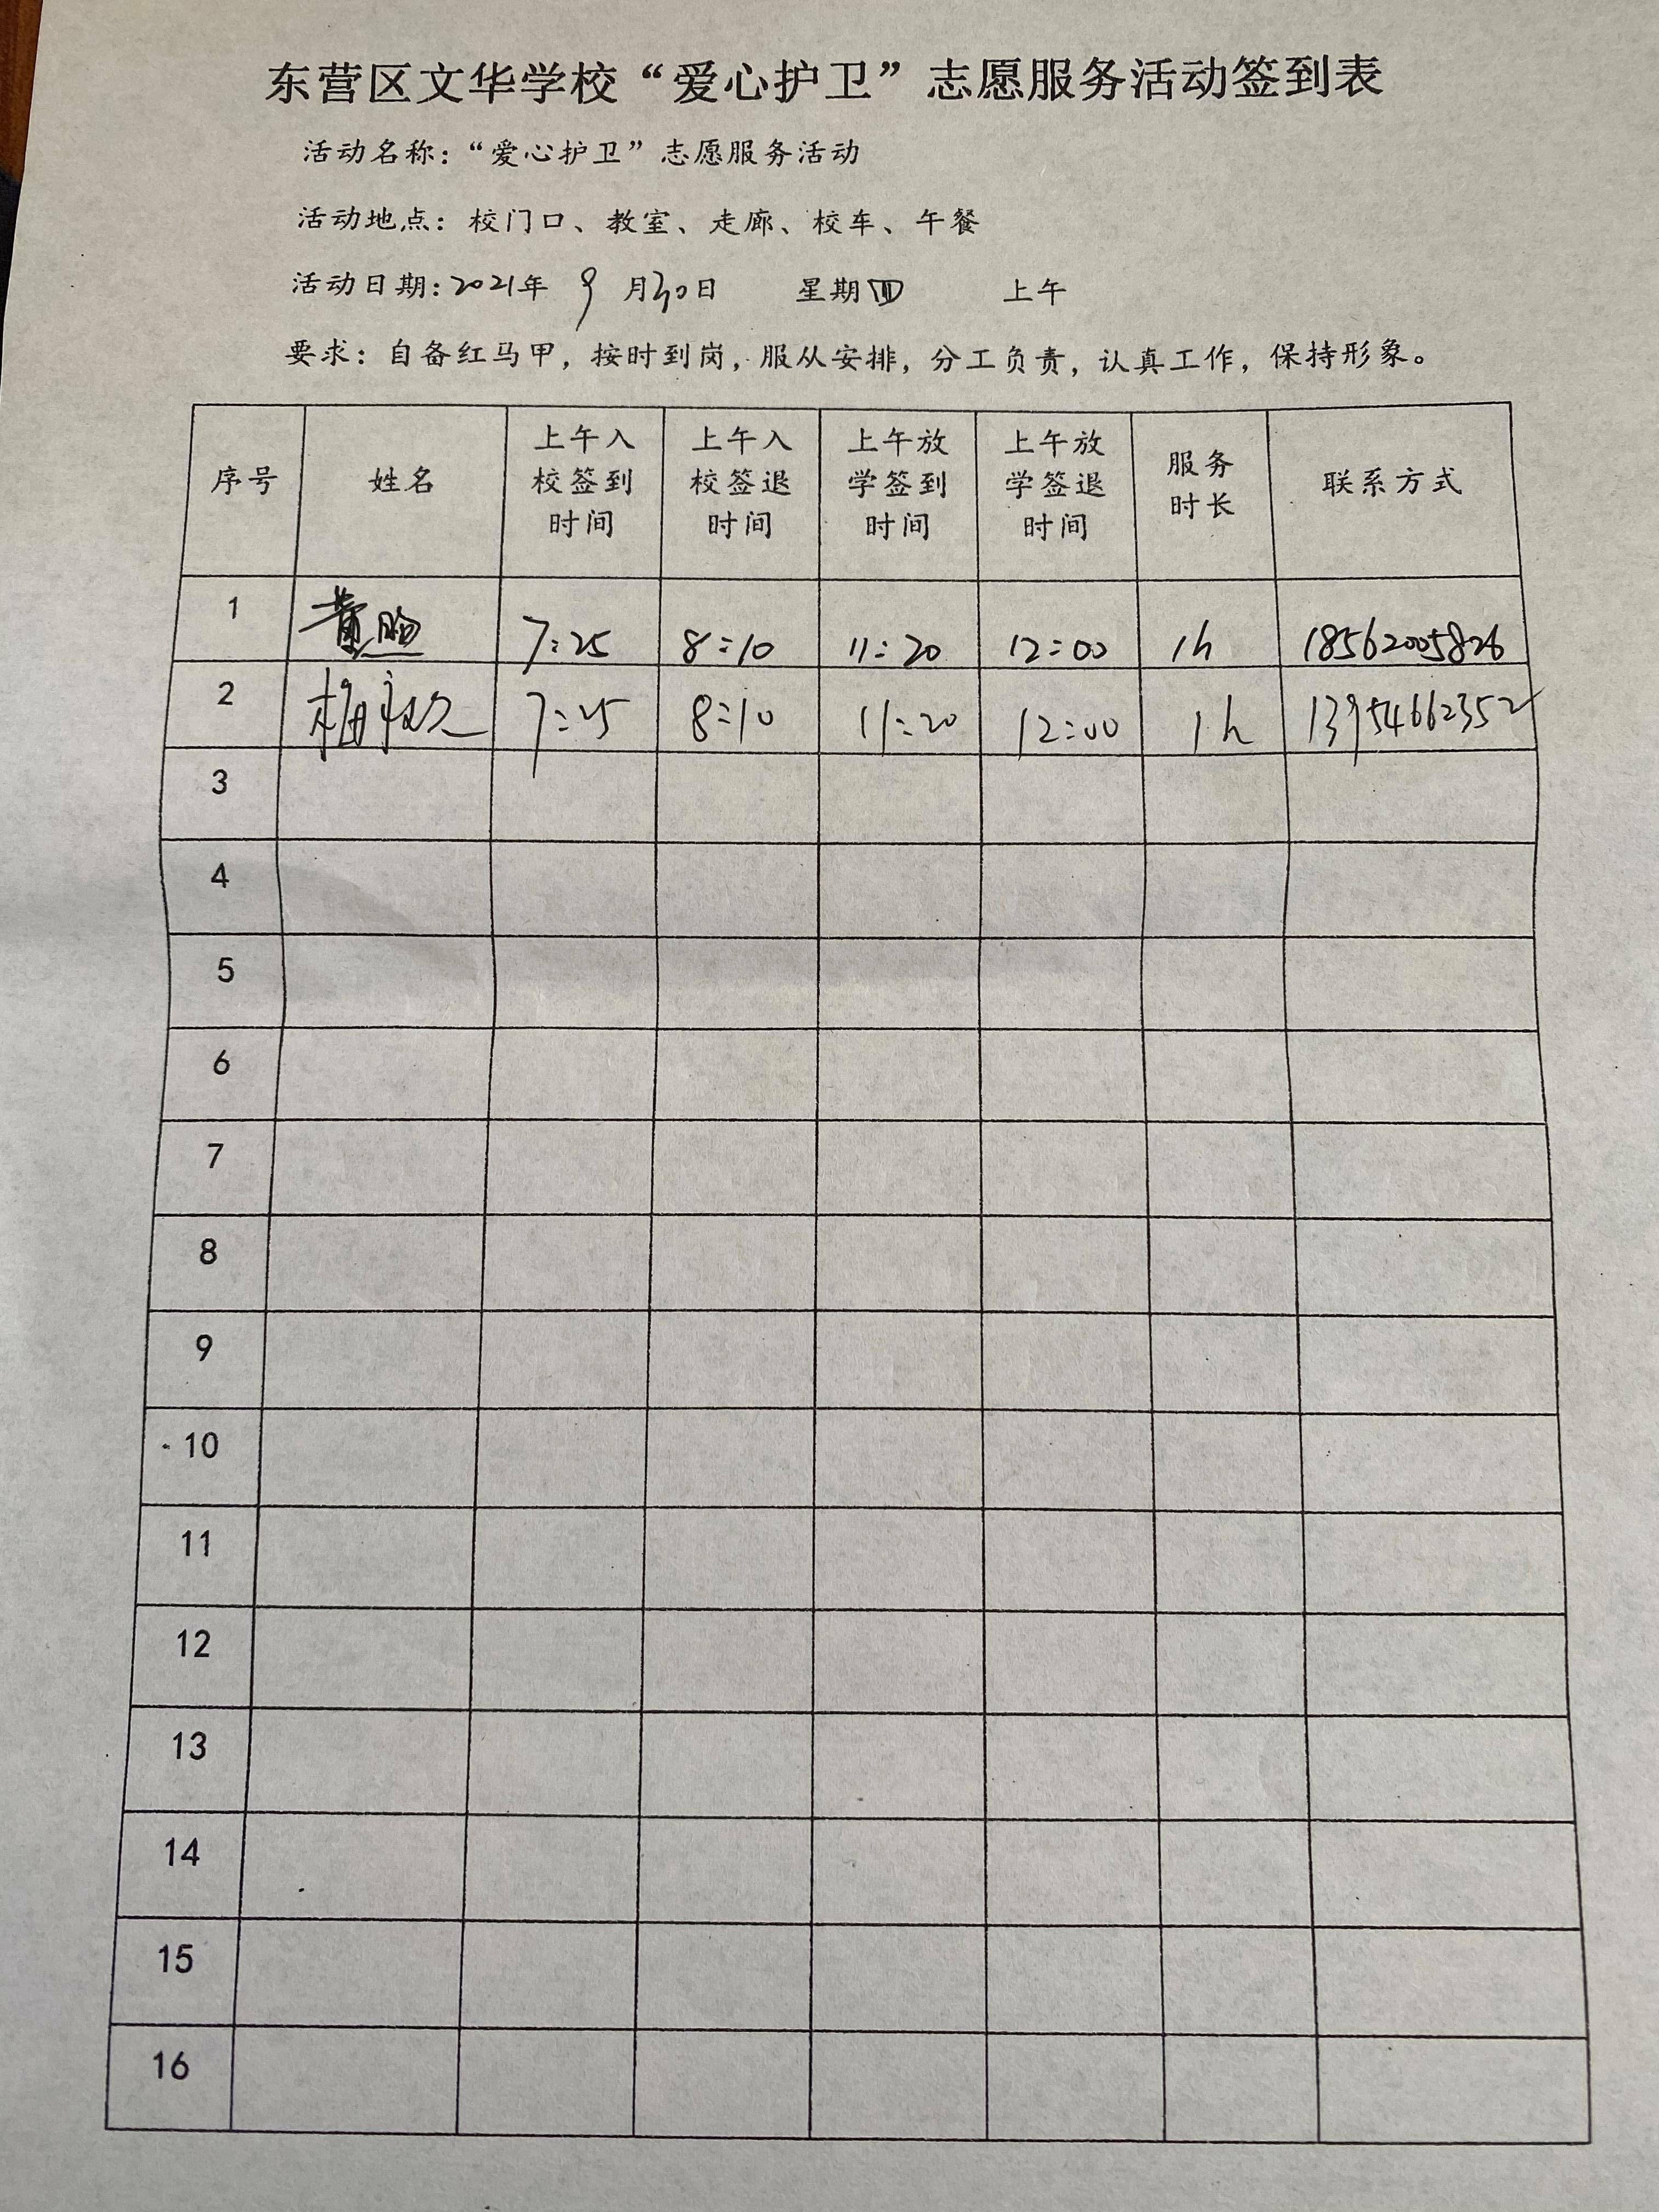 东营区文华学校“爱心护卫”志愿服务活动签到表
活动名称：“爱心护卫”志愿服务活动
活动地点：校门口、教室、走廊、校车、午餐
活动日期：2021年 9 月30日 星期四 上午
要求：自备红马甲，按时到岗，服从安排，分工负责，认真工作，保持形象。
序号 姓名 上午入校签到时间 上午入校签退时间 上午放学签到时间 上午放学签退时间 服务时长 联系方式
1 7:25 8:10 11:20 12:00 1h 18562005826
2 7:25 8:10 11:20 12:00 1h 13954662352
3
4
5
6
7
8
9
10
11
12
13
14
15
16